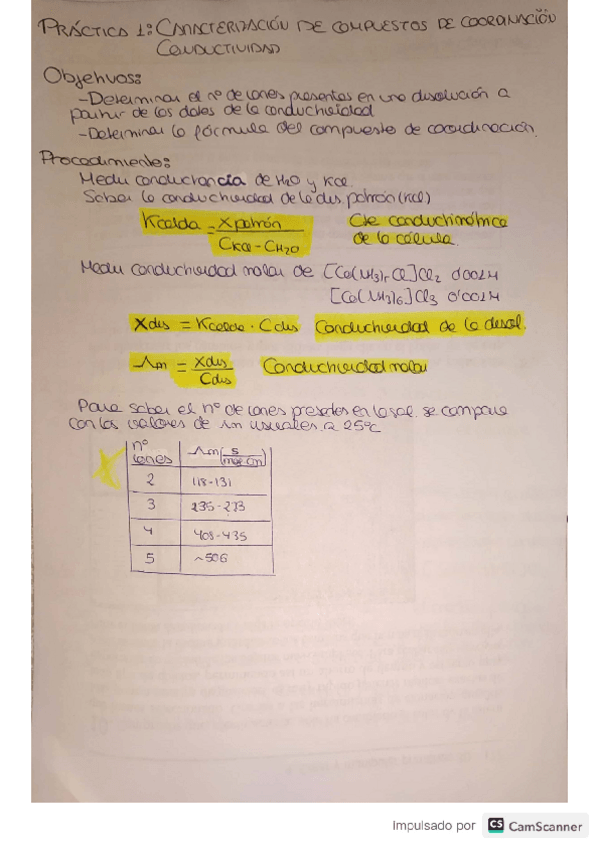 PRÁCTICA 1: CARACTERIZACIÓN DE COMPUESTOS DE COORDINACIÓN
CONDUCTIVIDAD
Objetivos:
-Determinar el nº de iones presentes en una disolución a
partir de los datos de la conductividad
-Determinar la fórmula del compuesto de coordinación.
Procedimiento:
Medir conductancia de H2O y KCl.
Saber la conductividad de la dis. patrón (KCl)
Kcelda = Xpatrón / CKCl - CH2O Cte conductimétrica
de la célula.
Medir conductividad molar de [Co(NH3)5Cl]Cl2 0'001M
[Co(NH3)6]Cl3 0'001M
Xdis = Kcelda · Cdis Conductividad de la disol.
Λm = Xdis / Cdis Conductividad molar
Para saber el nº de iones presentes en la sol. se compara
con los valores de Λm usuales a 25ºC
nº
iones Λm
2 118-131
3 235-273
4 408-435
5 ~506
Impulsado por CS CamScanner